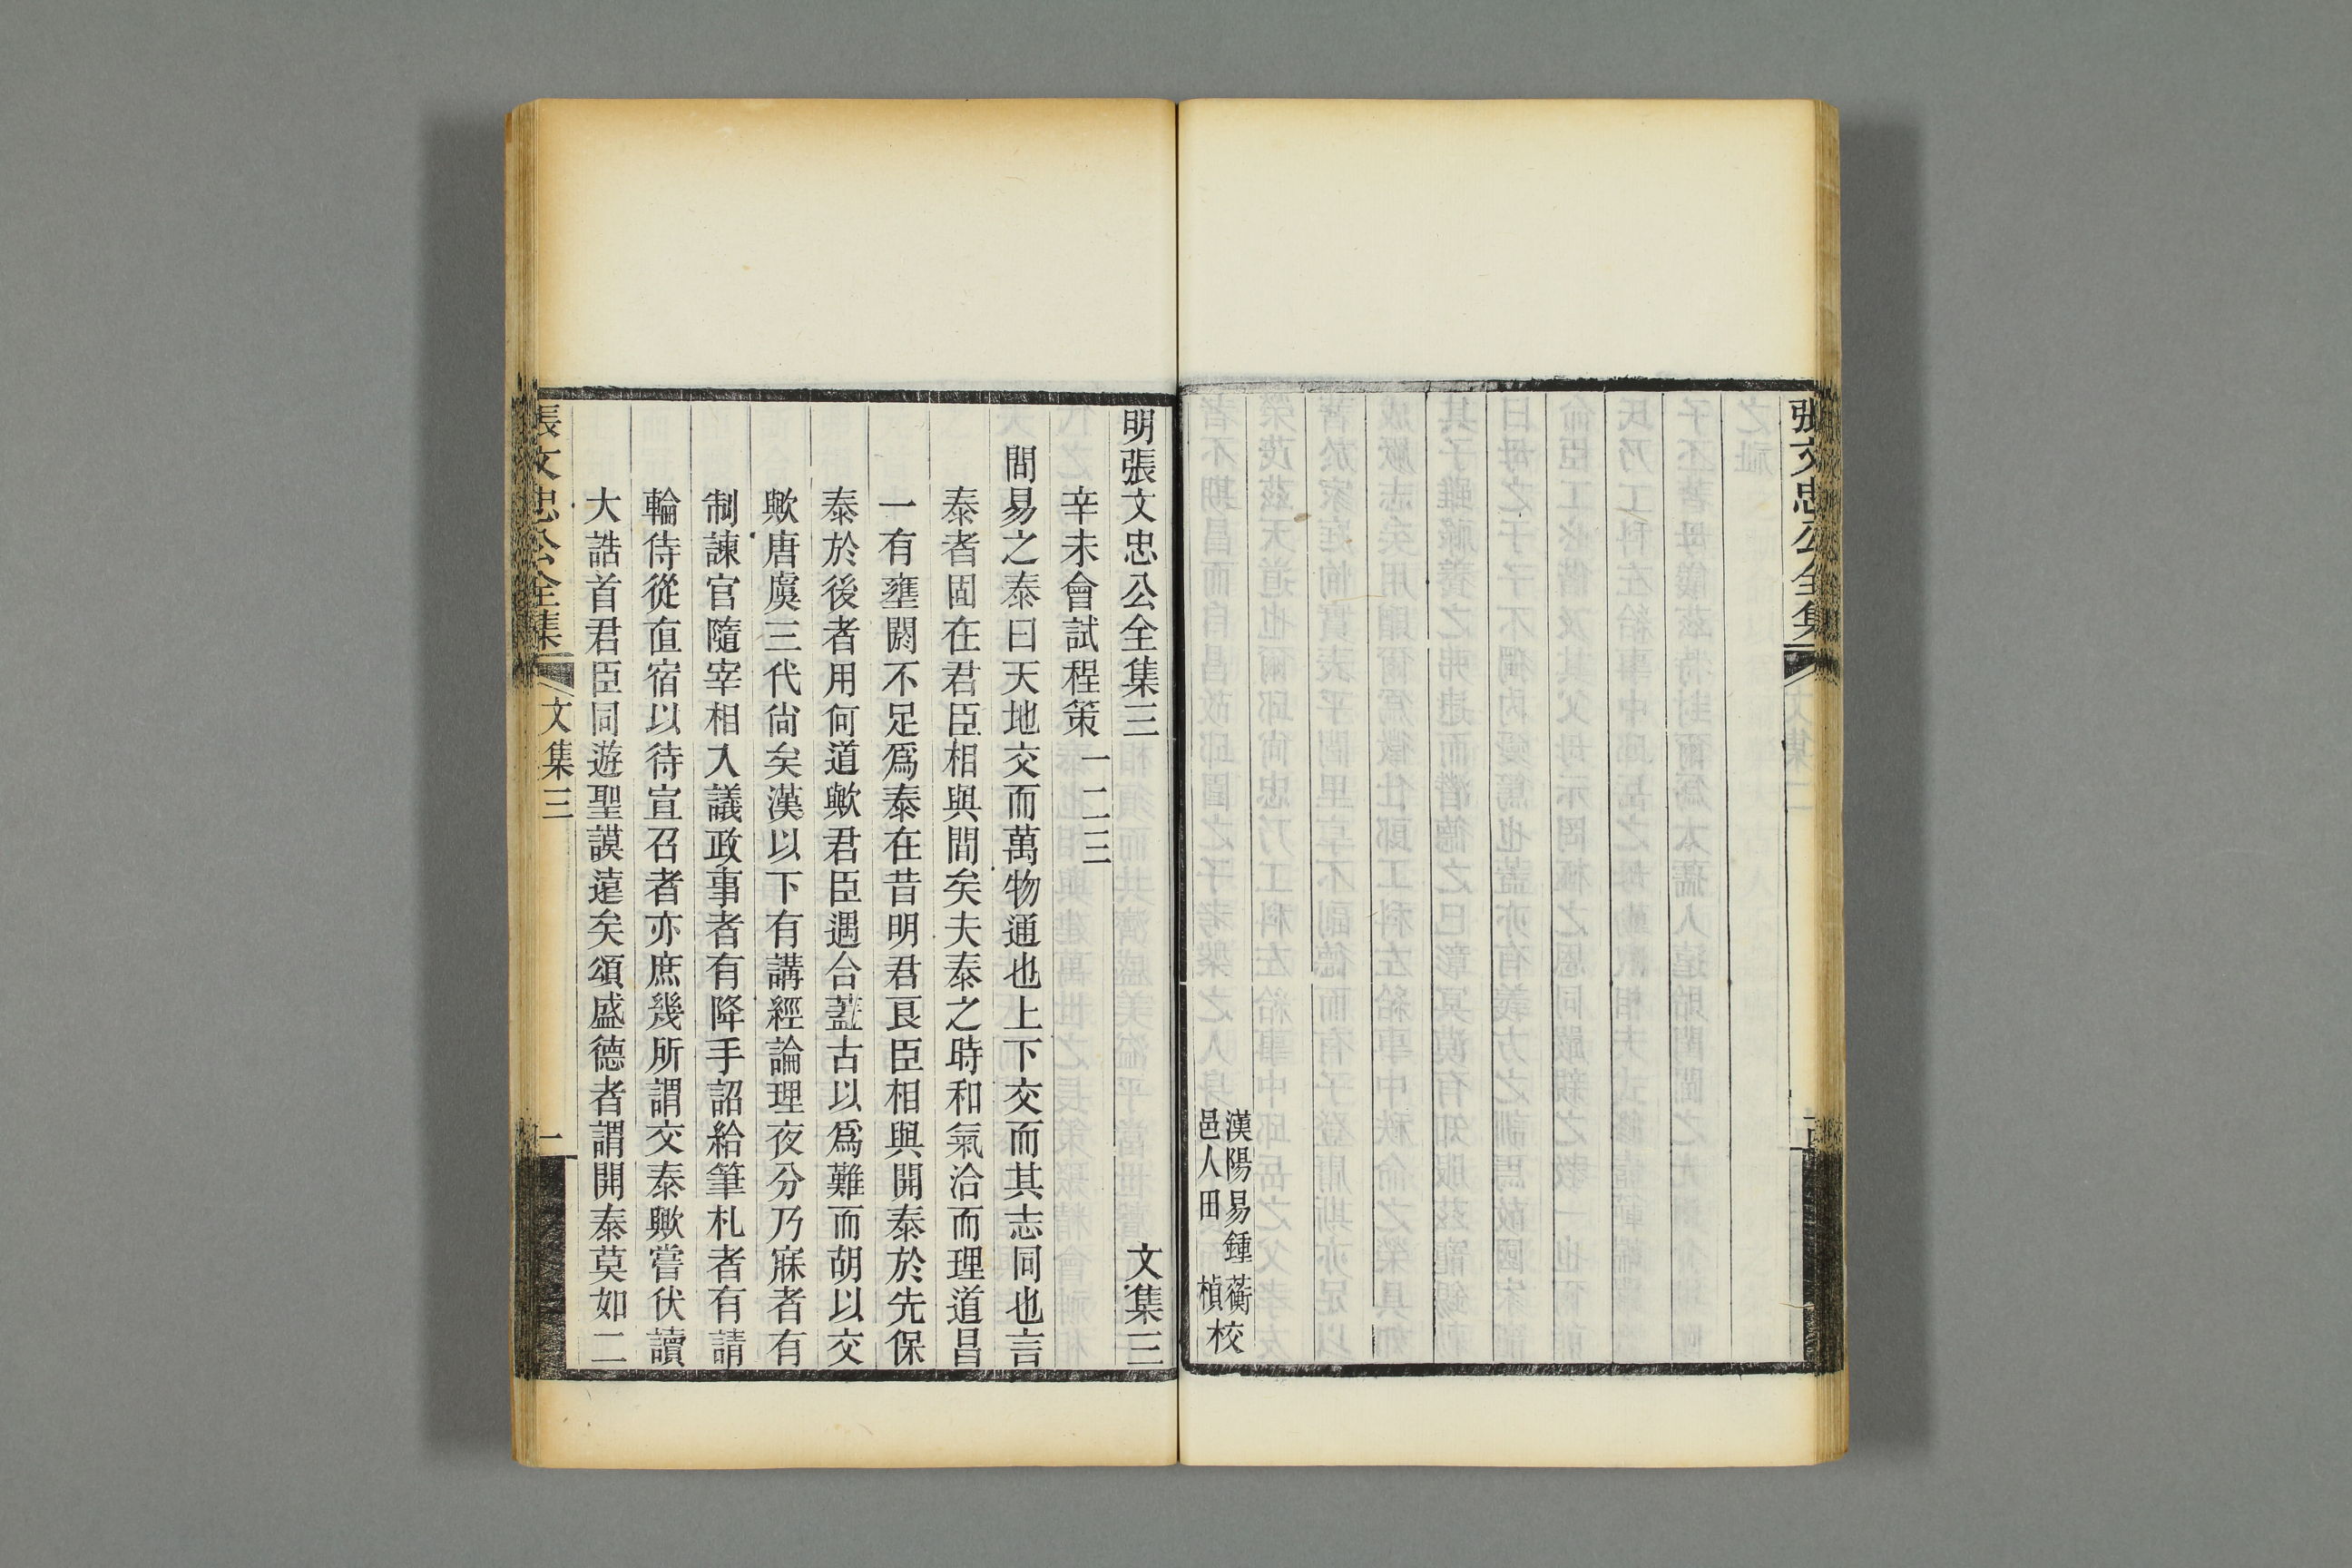 張文忠公全集
漢陽易鍾蘅
邑人田 楨 校
明張文忠公全集三 文集三
辛未會試程策 一 二 三
問易之泰曰天地交而萬物通也上下交而其志同也言
泰者固在君臣相與間矣夫泰之時和氣洽而理道昌
一有壅閼不足爲泰在昔明君良臣相與開泰於先保
泰於後者用何道歟君臣遇合蓋古以爲難而胡以交
歟唐虞三代尙矣漢以下有講經論理夜分乃寐者有
制諫官隨宰相入議政事者有降手詔給筆札者有請
輪侍從直宿以待宣召者亦庶幾所謂交泰歟嘗伏讀
大誥首君臣同遊聖謨遠矣頌盛德者謂開泰莫如二
張文忠公全集 文集三 一